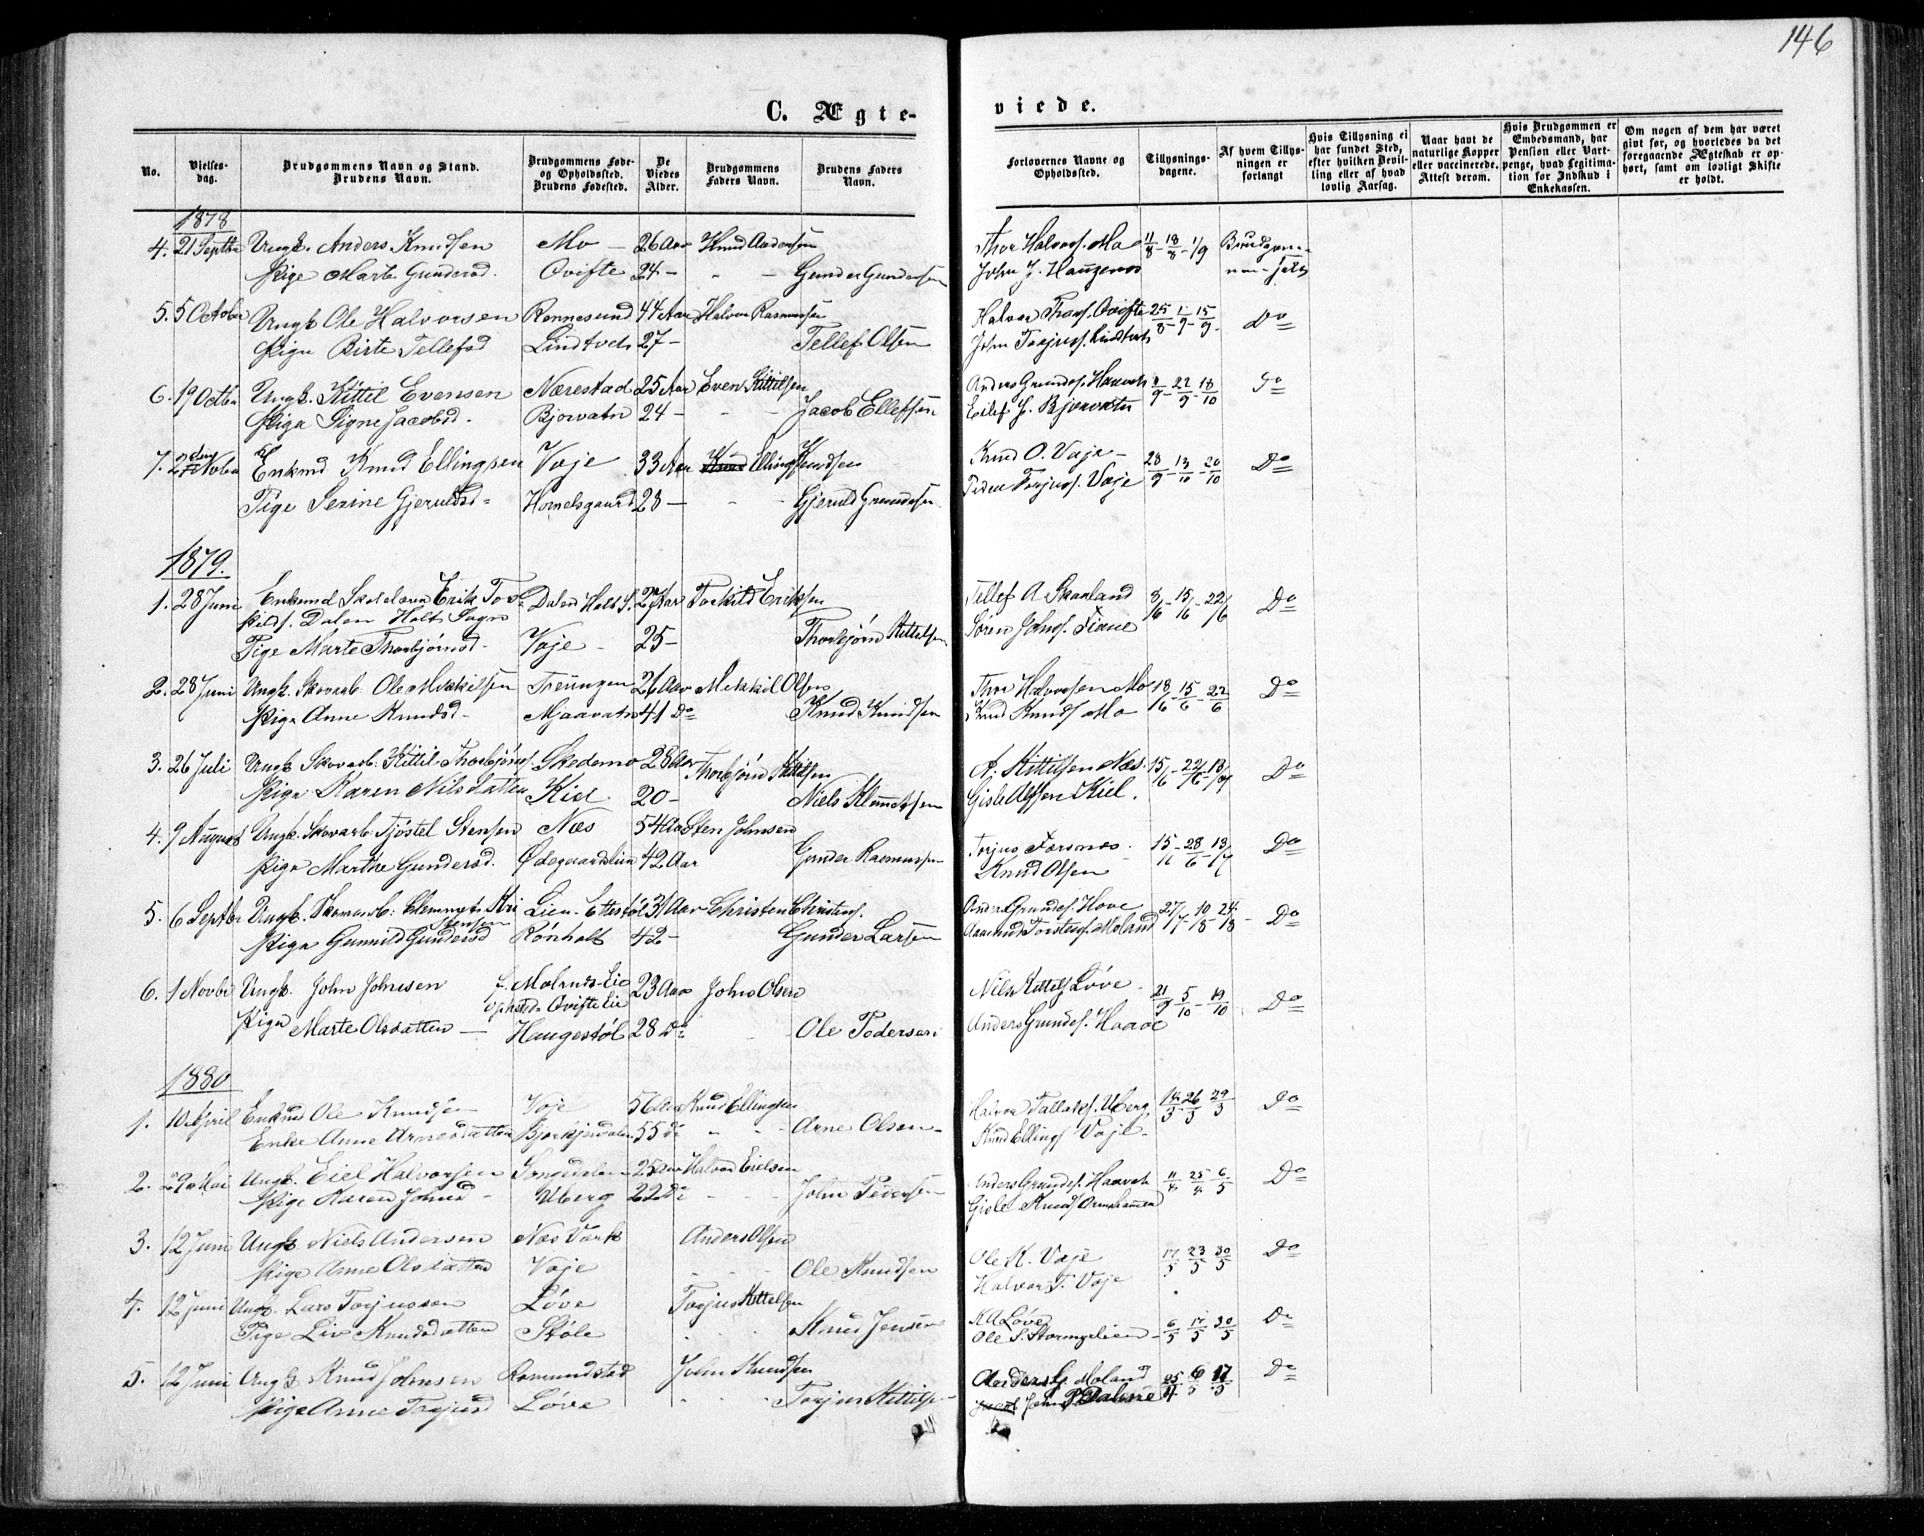 146
C. Ægte-
viede.
No.
Vielses-dag.
Brudgommens Navn og Stand. Brudens Navn.
Brudgommens Føde- og Opholdssted. Brudens Fødested.
De Viedes Alder.
Brudgommens Faders Navn.
Brudens Faders Navn.
Forlovernes Navne og Opholdssted.
Tillysnings-dagene.
Af hvem Tillys-ningen er forlangt
Hvis Tillysning ei har fundet Sted, efter hvilken Bevil-ling eller af hvad lovlig Aarsag.
Naar havt de naturlige Kopper eller vaccinerede. Attest derom.
Hvis Brudgommen er Embedsmand, har Pension eller Vart-penge, hvad Legitima-tion for Indskud i Enkekassen.
Om nogen af dem har været givt før, og hvorledes da det foregaaende Ægteskab er op-hørt, samt om lovligt Skifte er holdt.
1878
4. 21 Septbr Ungk. Anders Knudsen Mo 26 Aar Knud Andersen Thor Halvors. Mo 11/8 - 18/8 - 1/9
Pige Marte Gundersd. Ovifte 24 - - - Gunder Gundersen John J. Haugenes
5. 5 October Ungk. Ole Halvorsen Rønnesund 44 Aar Halvor Rasmussen Halvor Thors. Ovifte 25/8 - 1/9 - 15/9 Do
Pige Birte Tellefsd Lindtveit 27 - Tellef Olsen John Torjuss. Lindtveit
6. 19 Octbr Ungk. Kittil Evensen Nærestad 25 Aar Even Kittilsen Anders Gunders. Haaveh 22/9 - 18/10 Do
Pige Signe Jacobsd. Bjorvatn 24 - - - Jacob Ellefsen Eilef J. Bjorvatn
7. 2den Novbr Enkmd Knud Ellingsen Vaje 33 Aar Elling Knudsen Knud O. Vaje 28/9 - 13/10 - 20/10 Do
Pige Serine Gjeruldsd Homelsgaard 28 - - - Gjeruld Gundersen Peder Torjuss. Vaje
1879.
1. 28 Juni Enkmd Erik Tor- Dalen Holt S. Torkild Eriksen Tellef A. Skaaland 8/6 - 15/6 - 22/6 Do
kilds. Dalen Holt Sogn Søren Johns. Fiane
Pige Marte Thorbjørnsd. Vaje 25 - Thorbjørn Kittelsen
2. 28 Juni Ungk. Skovarb. Ole Mikkilsen Treungen 26 Aar Mikkil Olsen Thor Halvorsen Mo 18/6 - 15/6 - 22/6 Do
Pige Anne Knudsd. Mjaavatn 41 Do Knud Knudsen Knud Knuds Mo
3. 26 Juli Ungk Skovarb. Kittil Thorbjørns. Skedemo 28 Aar Thorbjørn Kittilsen A. Kittilsen Næs 15/6 - 22/6 - 13/7 Do
Pige Karen Nilsdatter Kiel 20 - Niels Klemetsen Gisle Olsen Kiel.
4. 9 August Ungk. Skovarb. Tjøstel Stensen Næs 54 Aar Sten Johnsen Torjus Forsnes 15 - 28/6 - 13/7 Do
Pige Marthe Gundersd. Ødegaardslien 42 Aar Gunder Rasmussen Knud Olsen
5. 6 Septbr Ungk. Skovarb: Lien 31 Aar Christen Christens. Anders Gunders. Hove 27/7 - 10/8 - 24/8 Do
Pige Gunnild Gundersd Rønholt 42 - Gunder Larsen Aasmund Torstens. Moland
6. 1 Novbr Ungk. John Johnsen f. Molands Lie 23 Aar John Olsen Nils Kittels Løve 21/9 - 5/10 - 19/10 Do
opholds. Ovifte Lie
Pige Marte Olsdatter Haugestøl 28 Do Ole Pedersen Anders Gunders. Haave
1880
1. 10 April Enkmd Ole Knudsen Vaje 56 Aar Knud Ellingsen Halvor Tallaks. Uberg 14/3 - 26/3 - 29/3 Do
Enke Anne Arnesdatter 55 Do - - Arne Olsen Knud Ellings Vaje
2. 29 Mai Ungk. Eiel Halvorsen Songedalen 25 Aar Halvor Eielsen Anders Gunders. Haaveh 11/4 25/4 6/5 Do
Pige Karen Johnsd Uberg 22 Do - - John Pedersen Gisle Knuds
3. 12 Juni Ungk Niels Andersen Næs Værk Anders Olsen Ole K. Vaje 17/5 23/5 30/5 Do
Pige Anne Olsdatter Vaje - - Ole Knudsen Halvor T. Vaje
4. 12 Juni Ungk. Lars Torjussen Løve Torjus Kittelsen K A Løve 6/5 17/5 30/5 Do
Pige Liv Knudsdatter Støle - - Knud Jensen Ole S. Stormyrlien
5. 12 Juni Ungk Knud Johnsen Romundstad John Knudsen Anders G. Moland 25/4 6/5 17/5 Do
Pige Anne Torjusd Løve - - Torjus Kittils John P Dalene